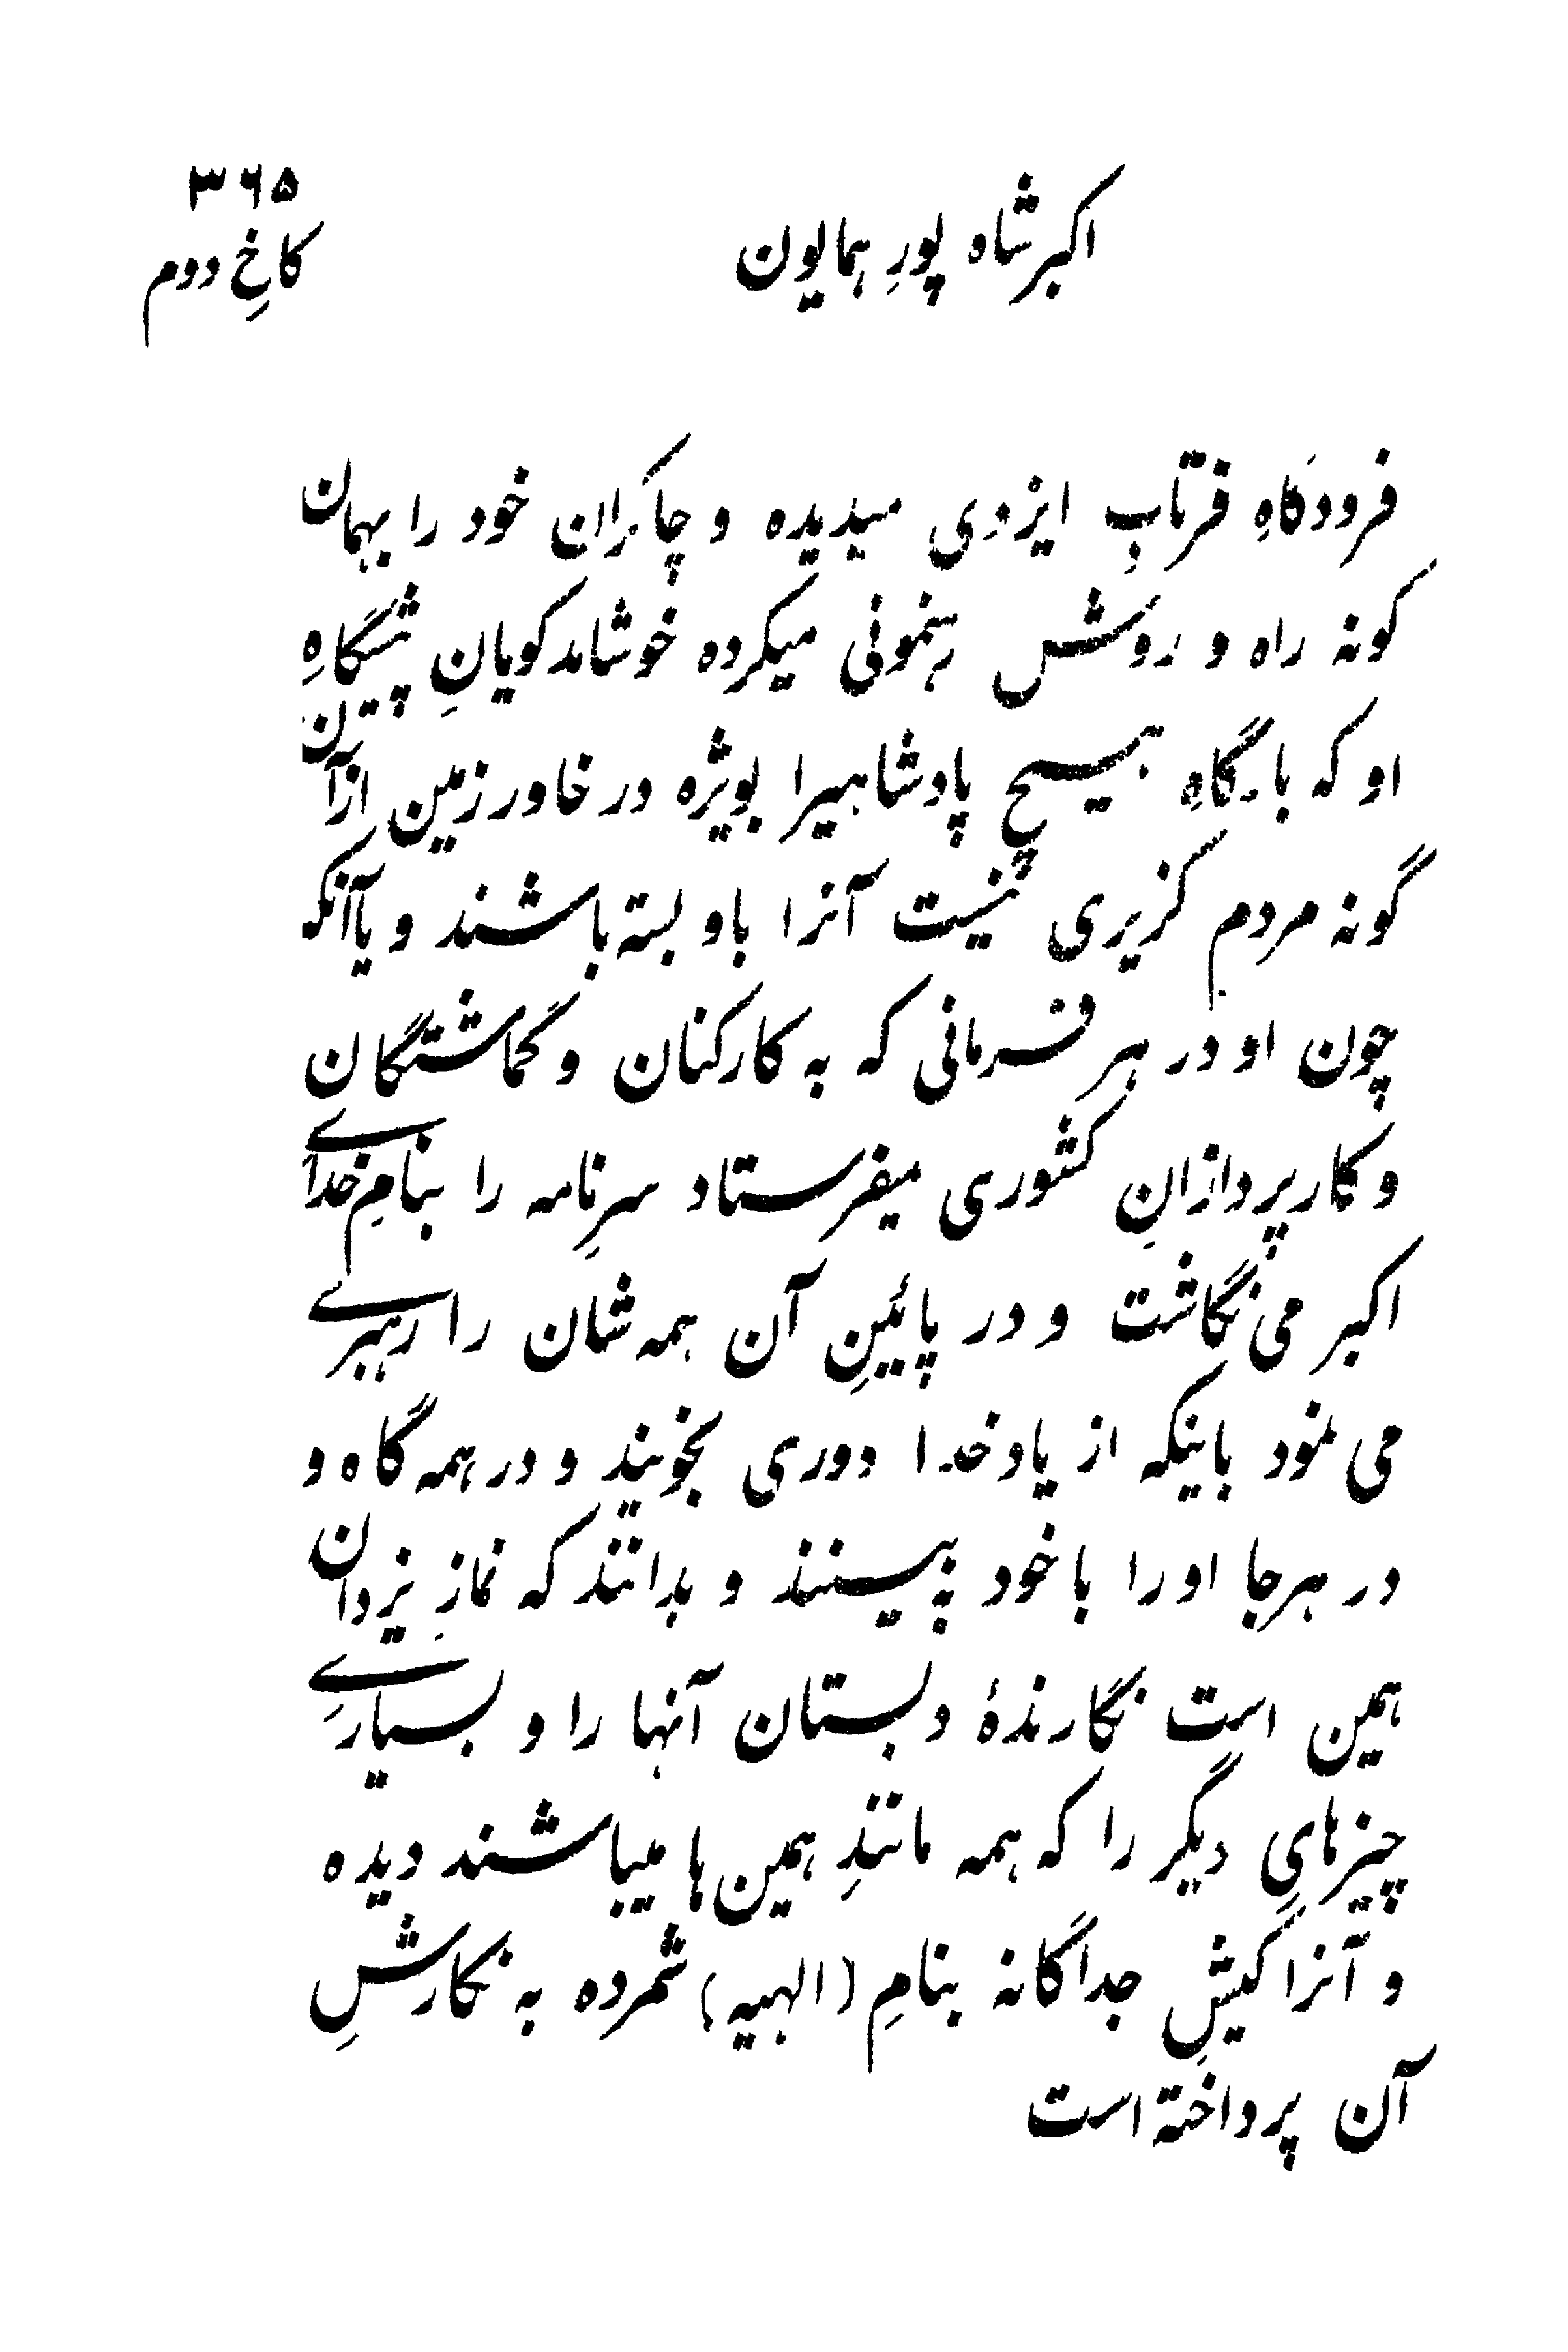 ۳۶۵
اکبر شاه پورِ همایون
کاخِ دوم
فرودگاهِ فرتابِ ایزدی میدیده و چاکران خود را بهمان
کونه راه و روش رهنمونی میکرده خوشامدکویانِ پیشگاهِ
او که بارگاهِ هیچ پادشاهیرا بویژه در خاور زمین ازآن
گونه مردم گزیری نیست آنرا باو بسته باشند و یاآنکه
چون او در هر فرمانی که به کارکنان و گماشتگان
و کارپردازانِ کشوری میفرستاد سرِنامه را بنامِ خدای
اکبر می نگاشت و در پائینِ آن همه شان را رهبری
می نمود باینکه از یاد خدا دوری نجویند و در همه گاه و
در هر جا او را با خود به بینند و بدانند که نمازِ یزدان
همین است نگارندهٔ دبستان آنها را و بسیاری
چیزهایِ دیگر را که همه مانندِ همین ها میباشند دیده
و آنرا کیشِ جداگانه بنامِ (الهیه) شمرده به نکارشِ
آن پرداخته است